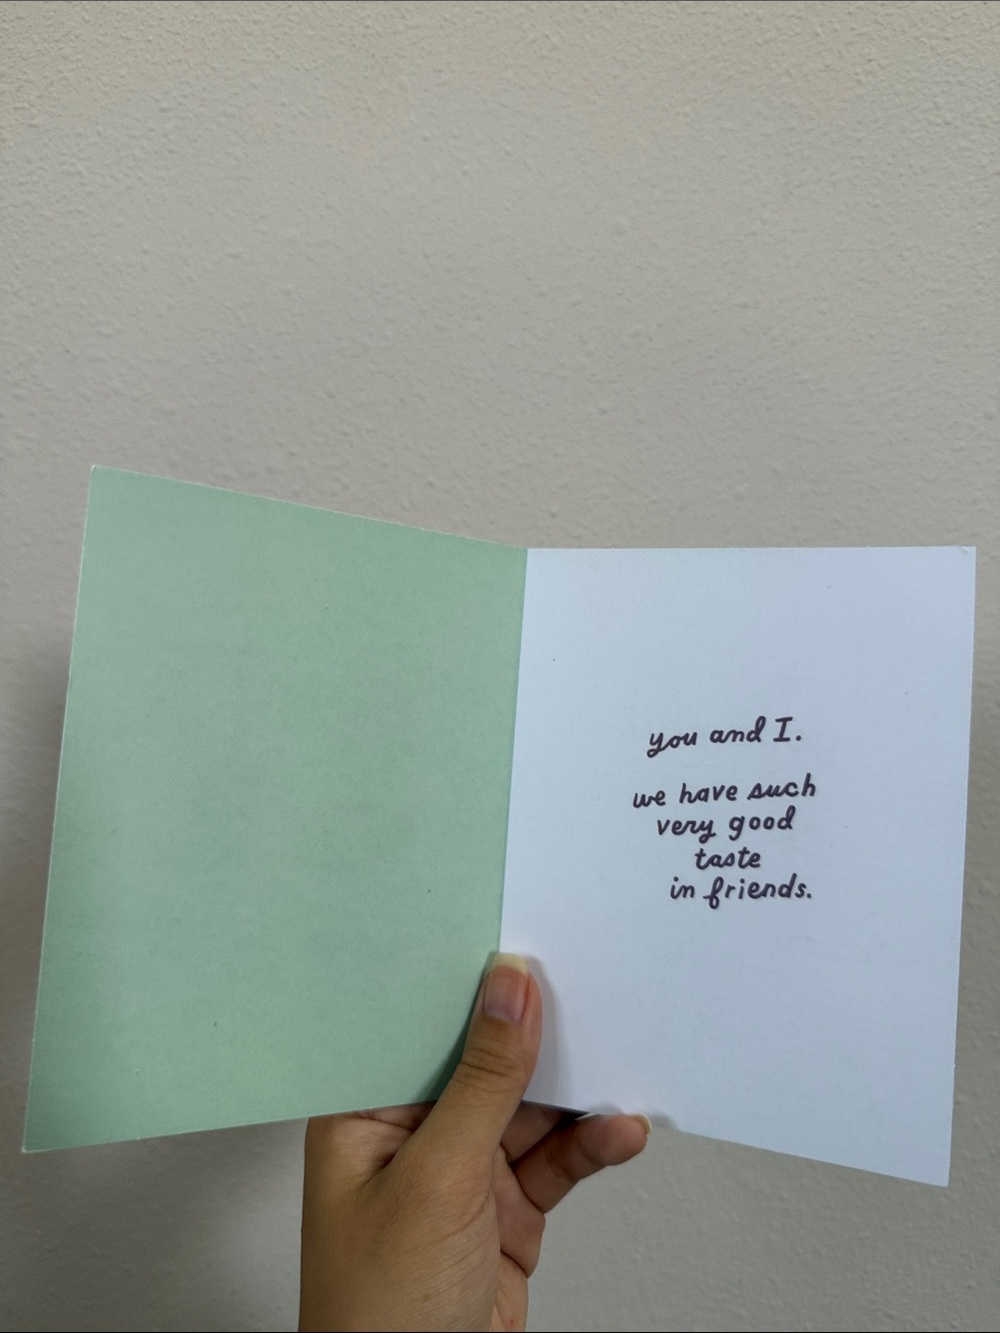 you and I.
we have such
very good
taste
in friends.